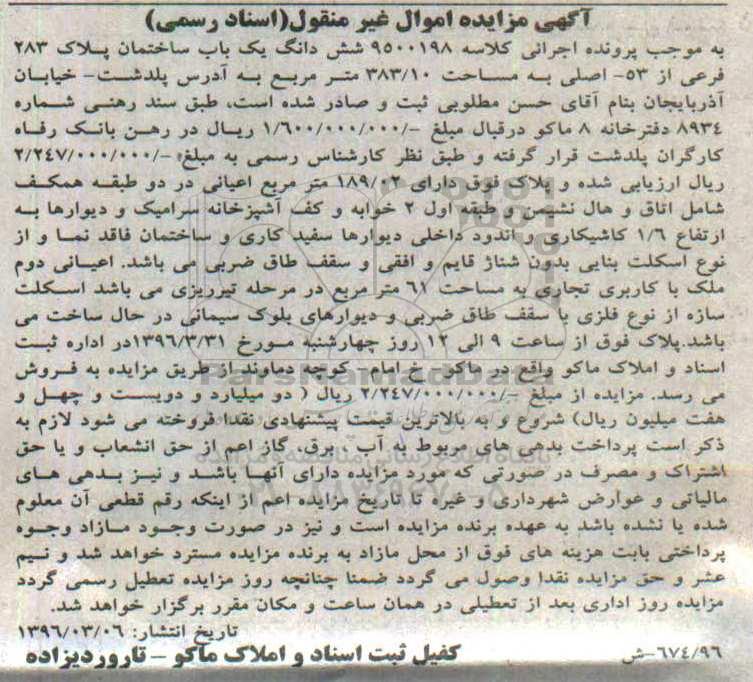 آگهی مزایده اموال غیر منقول(اسناد رسمی)
به موجب پرونده اجرائی کلاسه ۹۵۰۰۱۹۸ شش دانگ یک باب ساختمان پلاک ۲۸۳
فرعی از ۵۳- اصلی به مساحت ۳۸۳/۱۰ متر مربع به آدرس پلدشت- خیابان
آذربایجان بنام آقای حسن مطلوبی ثبت و صادر شده است، طبق سند رهنی شماره
۸۹۳٤ دفترخانه ۸ ماکو درقبال مبلغ -/۱/۶۰۰/۰۰۰/۰۰۰ ریال در رهن بانک رفاه
کارگران پلدشت قرار گرفته و طبق نظر کارشناس رسمی به مبلغ -/۲/۲٤۷/۰۰۰/۰۰۰
ریال ارزیابی شده و پلاک فوق دارای ۱۸۹/۰۲ متر مربع اعیانی در دو طبقه همکف
شامل اتاق و هال نشیمن و طبقه اول ۲ خوابه و کف آشپزخانه سرامیک و دیوارها به
ارتفاع ۱/٦ کاشیکاری و اندود داخلی دیوارها سفید کاری و ساختمان فاقد نما و از
نوع اسکلت بنایی بدون شناژ قایم و افقی و سقف طاق ضربی می باشد. اعیانی دوم
ملک با کاربری تجاری به مساحت ٦۱ متر مربع در مرحله تیرریزی می باشد اسکلت
سازه از نوع فلزی با سقف طاق ضربی و دیوارهای بلوک سیمانی در حال ساخت می
باشد.پلاک فوق از ساعت ۹ الی ۱۲ روز چهارشنبه مورخ ۱۳۹٦/۳/۳۱در اداره ثبت
اسناد و املاک ماکو واقع در ماکو - خ امام - کوچه دماوند از طریق مزایده به فروش
می رسد. مزایده از مبلغ -/۲/۲٤۷/۰۰۰/۰۰۰ ریال ( دو میلیارد و دویست و چهل و
هفت میلیون ریال) شروع و به بالاترین قیمت پیشنهادی نقدا فروخته می شود لازم به
ذکر است پرداخت بدهی های مربوط به آب - برق- گاز اعم از حق انشعاب و یا حق
اشتراک و مصرف در صورتی که مورد مزایده دارای آنها باشد و نیز بدهی های
مالیاتی و عوارض شهرداری و غیره تا تاریخ مزایده اعم از اینکه رقم قطعی آن معلوم
شده یا نشده باشد به عهده برنده مزایده است و نیز در صورت وجود مازاد وجوه
پرداختی بابت هزینه های فوق از محل مازاد به برنده مزایده مسترد خواهد شد و نیم
عشر و حق مزایده نقدا وصول می گردد ضمنا چنانچه روز مزایده تعطیل رسمی گردد
مزایده روز اداری بعد از تعطیلی در همان ساعت و مکان مقرر برگزار خواهد شد.
تاریخ انتشار: ۱۳۹٦/۰۳/۰٦
٦۷٤/۹٦-ش کفیل ثبت اسناد و املاک ماکو - تاروردیزاده
ParsNamadData